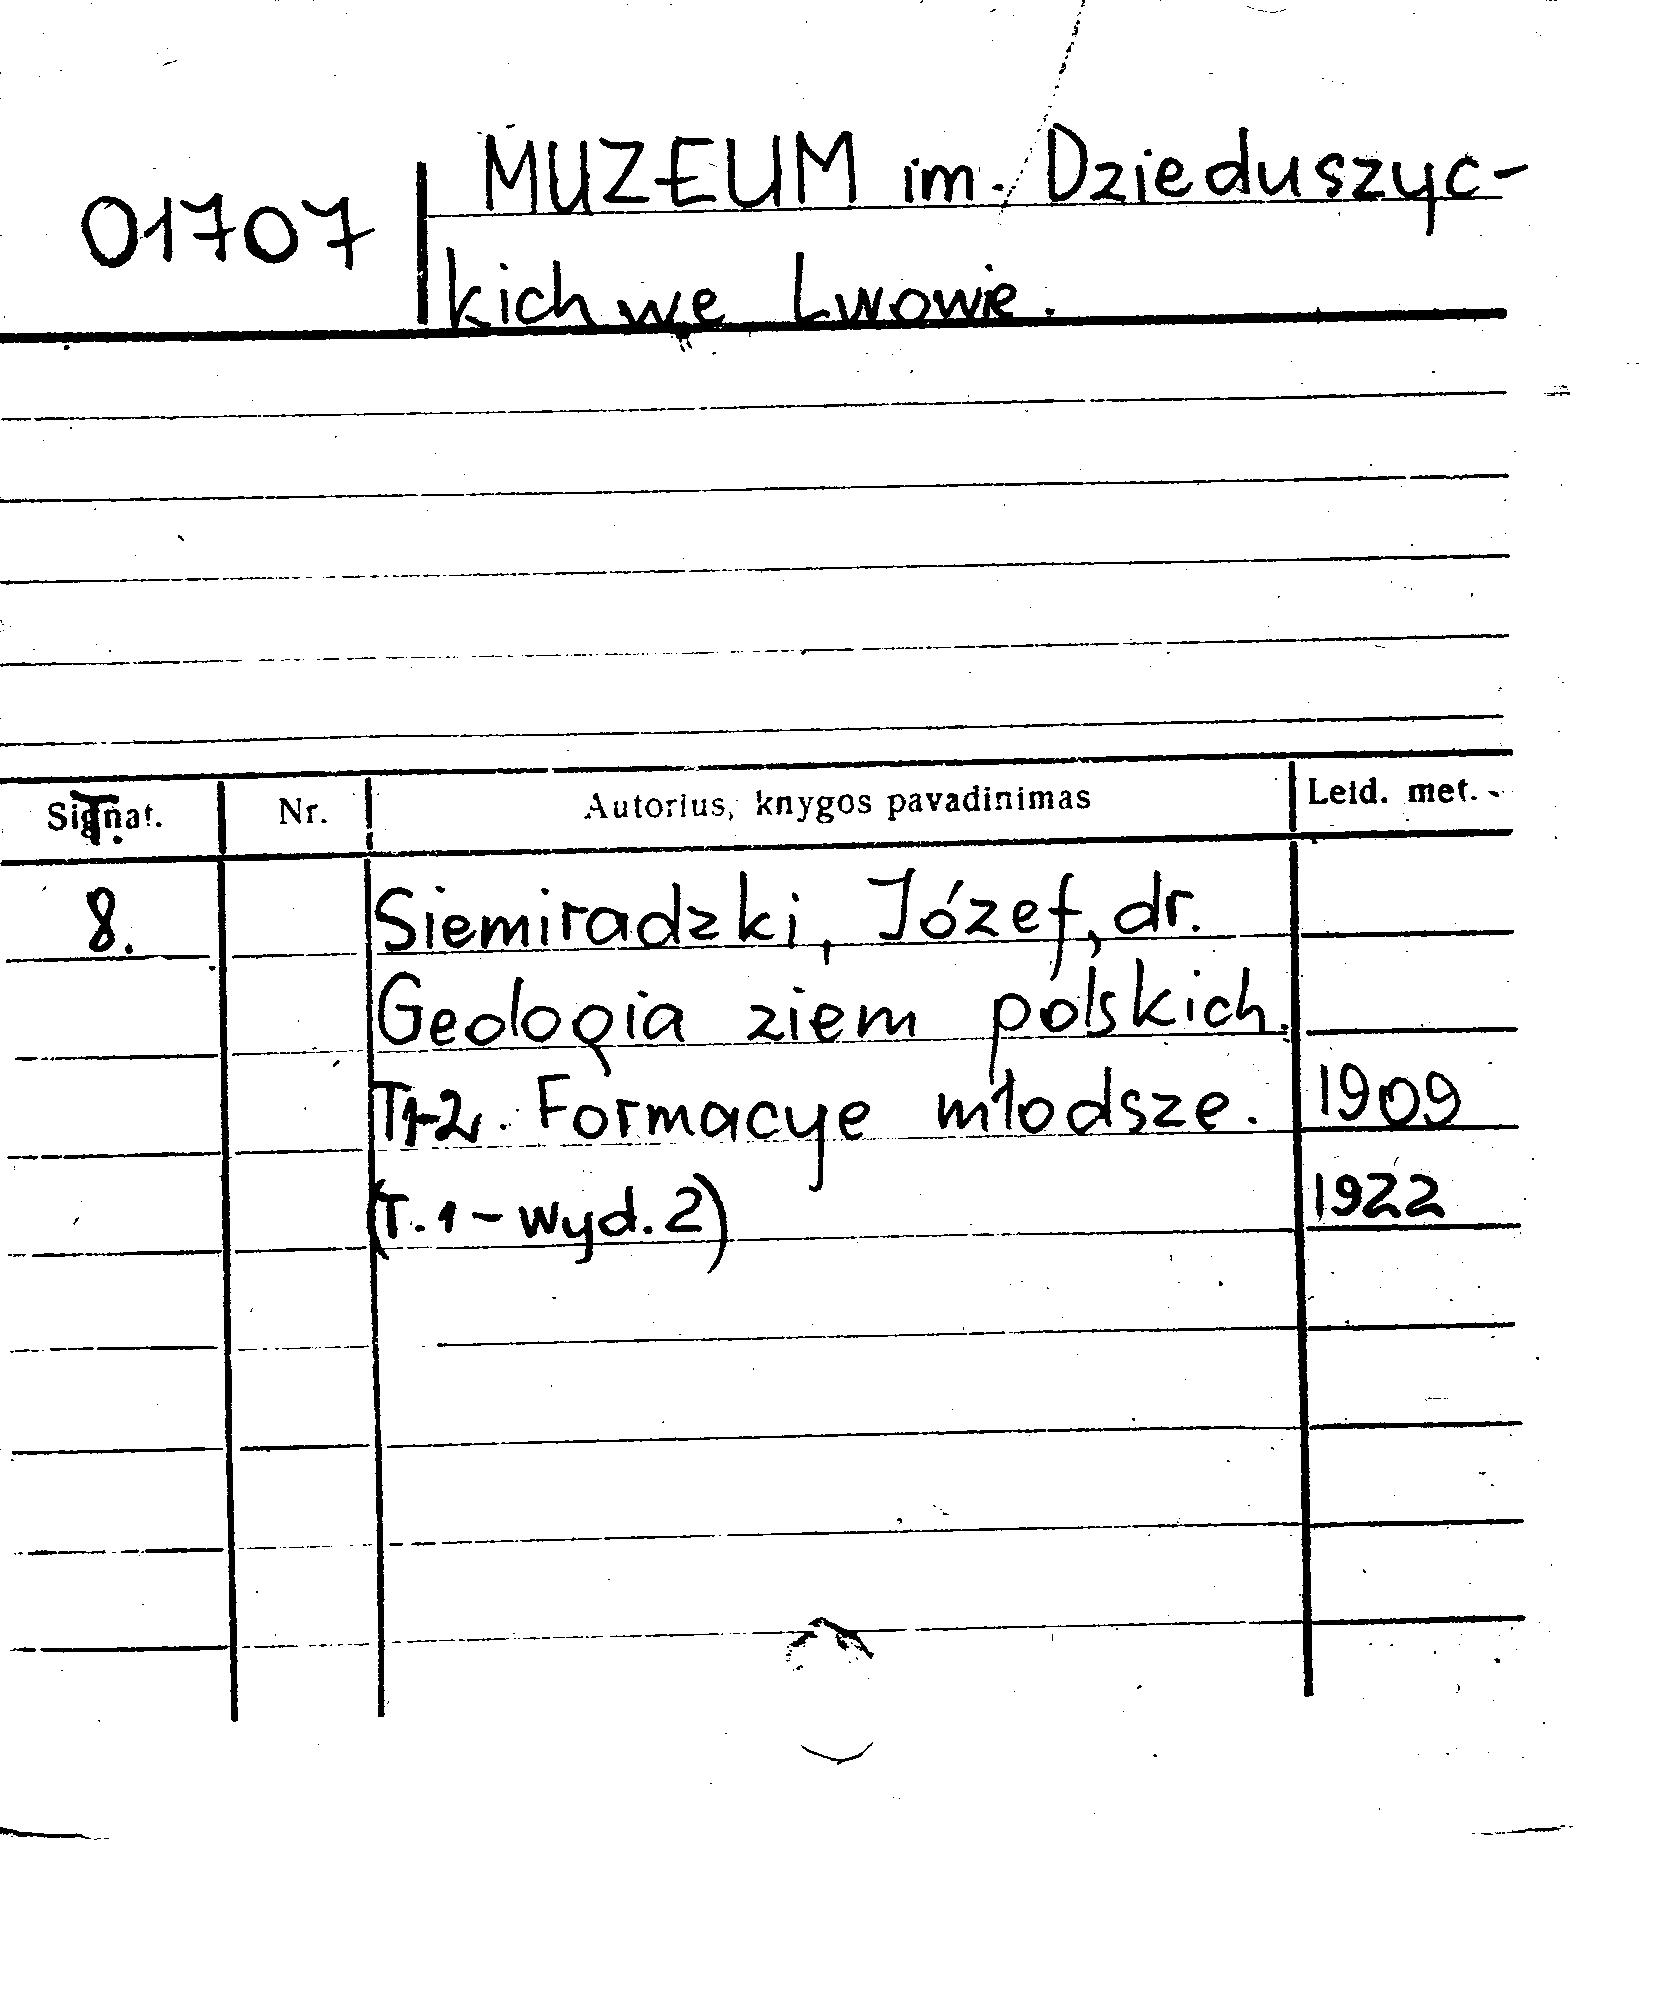 MUZEUM im. Dzieduszyc-
01707 kich we Lwowie.
Signat. T. Nr. Autorius, knygos pavadinimas Leid. met.
8. Siemiradzki, Józef, dr.
Geologia ziem polskich.
T.1-2. Formacye młodsze. 1909
(T. 1 - wyd. 2) 1922